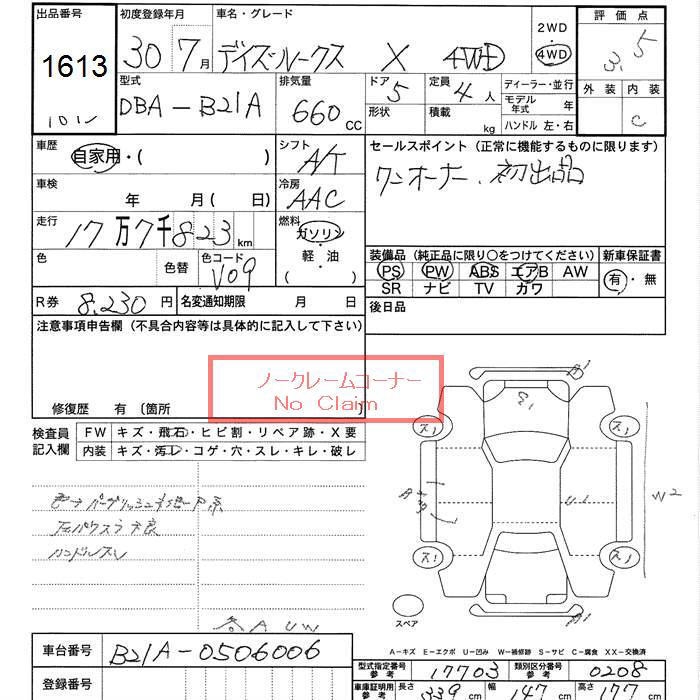 出品番号 初度登録年月 車名・グレード 2WD 評価点
1613 30 7月 デイズ・ルークス X 4WD ・ 3.5
4WD
型式 排気量 ドア 定員 ディーラー・並行 外装 内装
DBA-B21A 660 cc 5 4人 モデル年式 年 C
形状 積載 kg ハンドル 左・右
車歴 シフト セールスポイント（正常に機能するものに限ります）
自家用・( ) A/T ワンオーナー、初出品
車検 冷房
年 月 ( 日) AAC
走行 燃料
17万7千823km ガソリン
色 色替 色コード 軽・油 装備品（純正品に限り○をつけてください） 新車保証書
V09 ( ) PS PW ABS エアB AW 有・無
SR ナビ TV カワ
R券 8,230円 名変通知期限 月 日 後日品
注意事項申告欄（不具合内容等は具体的に記入して下さい）
ノークレームコーナー
No Claim
修復歴 有〔箇所 〕
検査員 FW キズ・飛石・ヒビ割・リペア跡・X要
記入欄 内装 キズ・汚コ・コゲ・穴・スレ・キレ・破レ
ハンドルスレ
A UW
W2
スペア
A－キズ E－エクボ U－凹み W－補修跡 S－サビ C－腐食 XX－交換済
車台番号 B21A-0506006
型式指定番号 参考 17703 類別区分番号 参考 0208
登録番号 車庫証明用 参考 長さ 339 cm 幅 147 cm 高さ 177